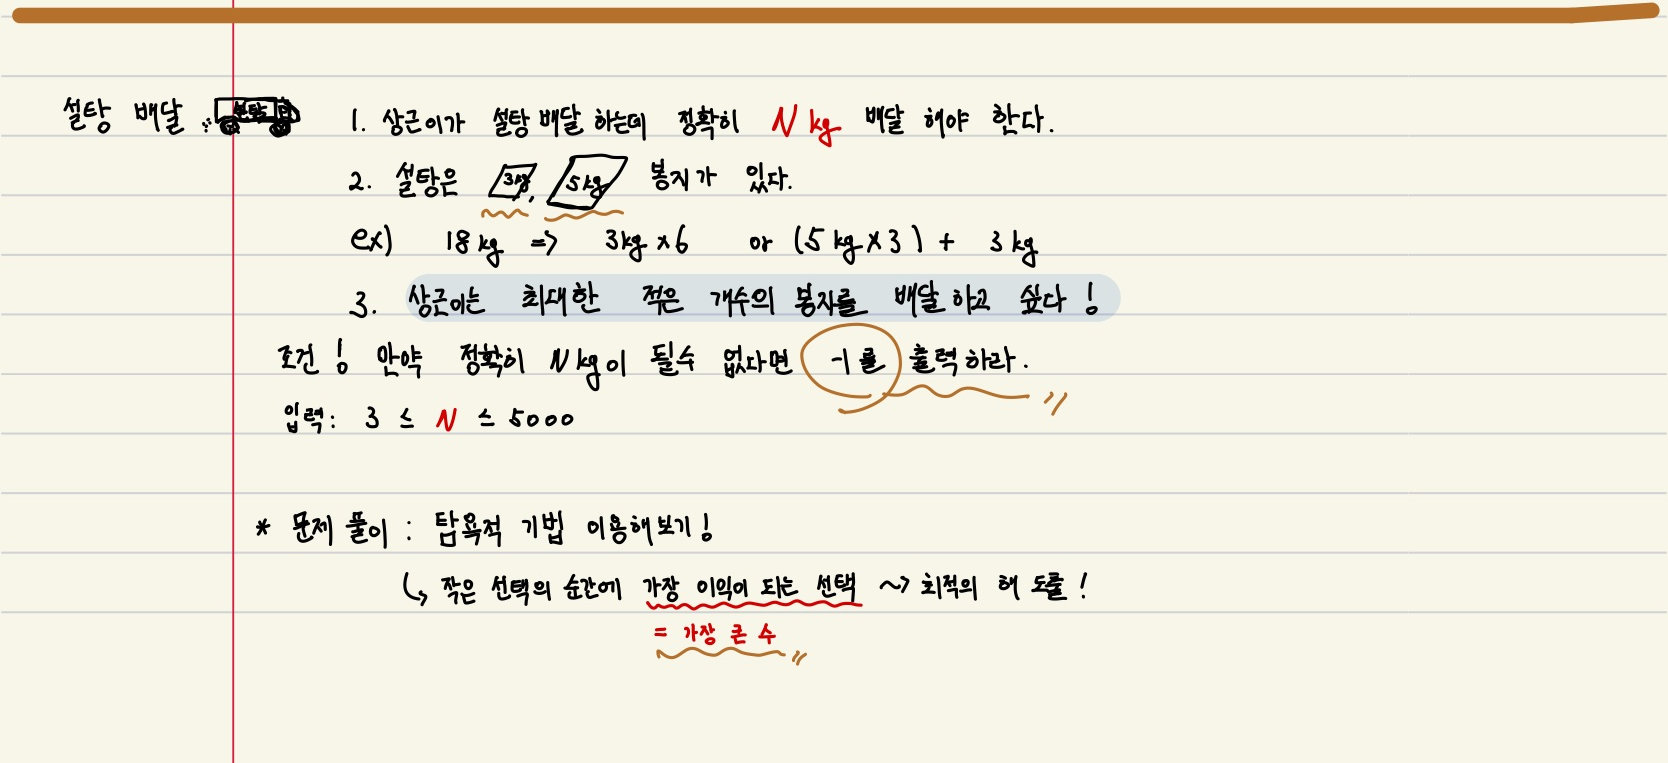 설탕 배달 설탕
1. 상근이가 설탕 배달 하는데 정확히 N kg 배달 해야 한다.
2. 설탕은 3kg, 5kg 봉지가 있다.
ex) 18 kg => 3kg x 6 or (5 kg x 3) + 3 kg
3. 상근이는 최대한 적은 개수의 봉지를 배달 하고 싶다!
조건! 만약 정확히 N kg이 될수 없다면 -1를 출력하라.
입력: 3 ≤ N ≤ 5000
* 문제 풀이 : 탐욕적 기법 이용해보기!
↳ 작은 선택의 순간에 가장 이익이 되는 선택 ~> 최적의 해 도출!
= 가장 큰 수